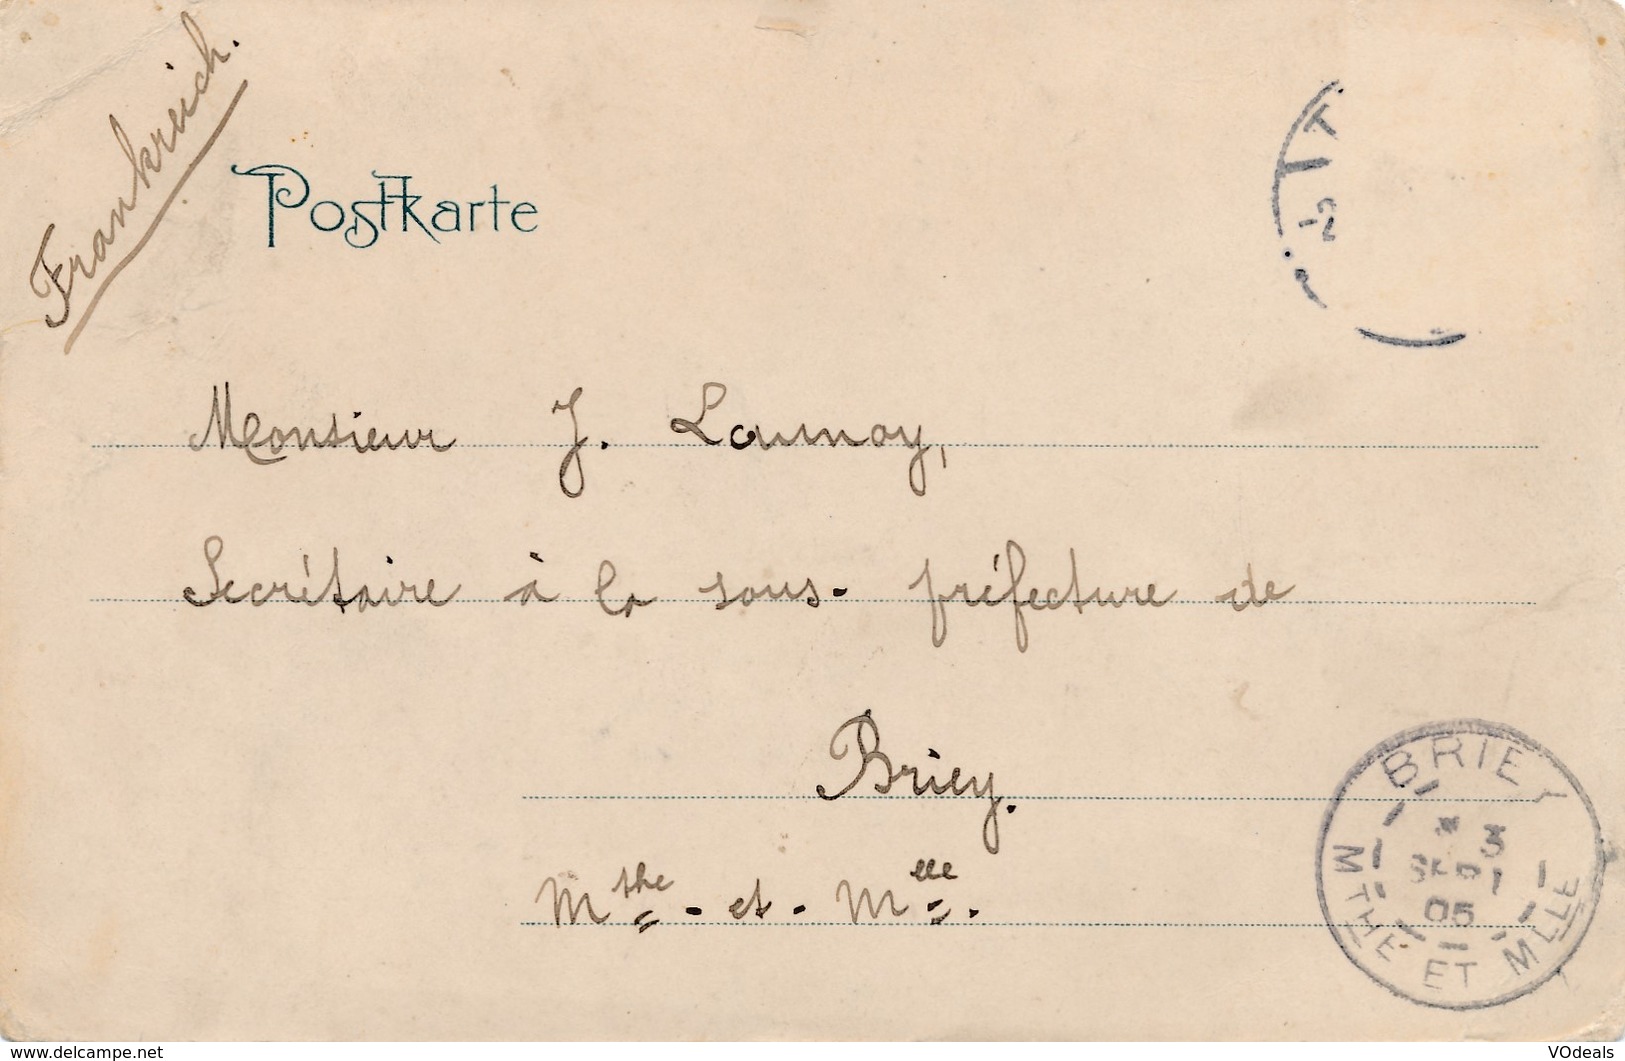 Frankreich.
Postkarte
T.
-2
Monsieur J. Launoy,
Secrétaire à la sous-préfecture de
Briey.
Mthe - et - Mlle.
BRIEY
* 3
SEPT
05
MTHE ET MLLE
www.delcampe.net
VOdeals